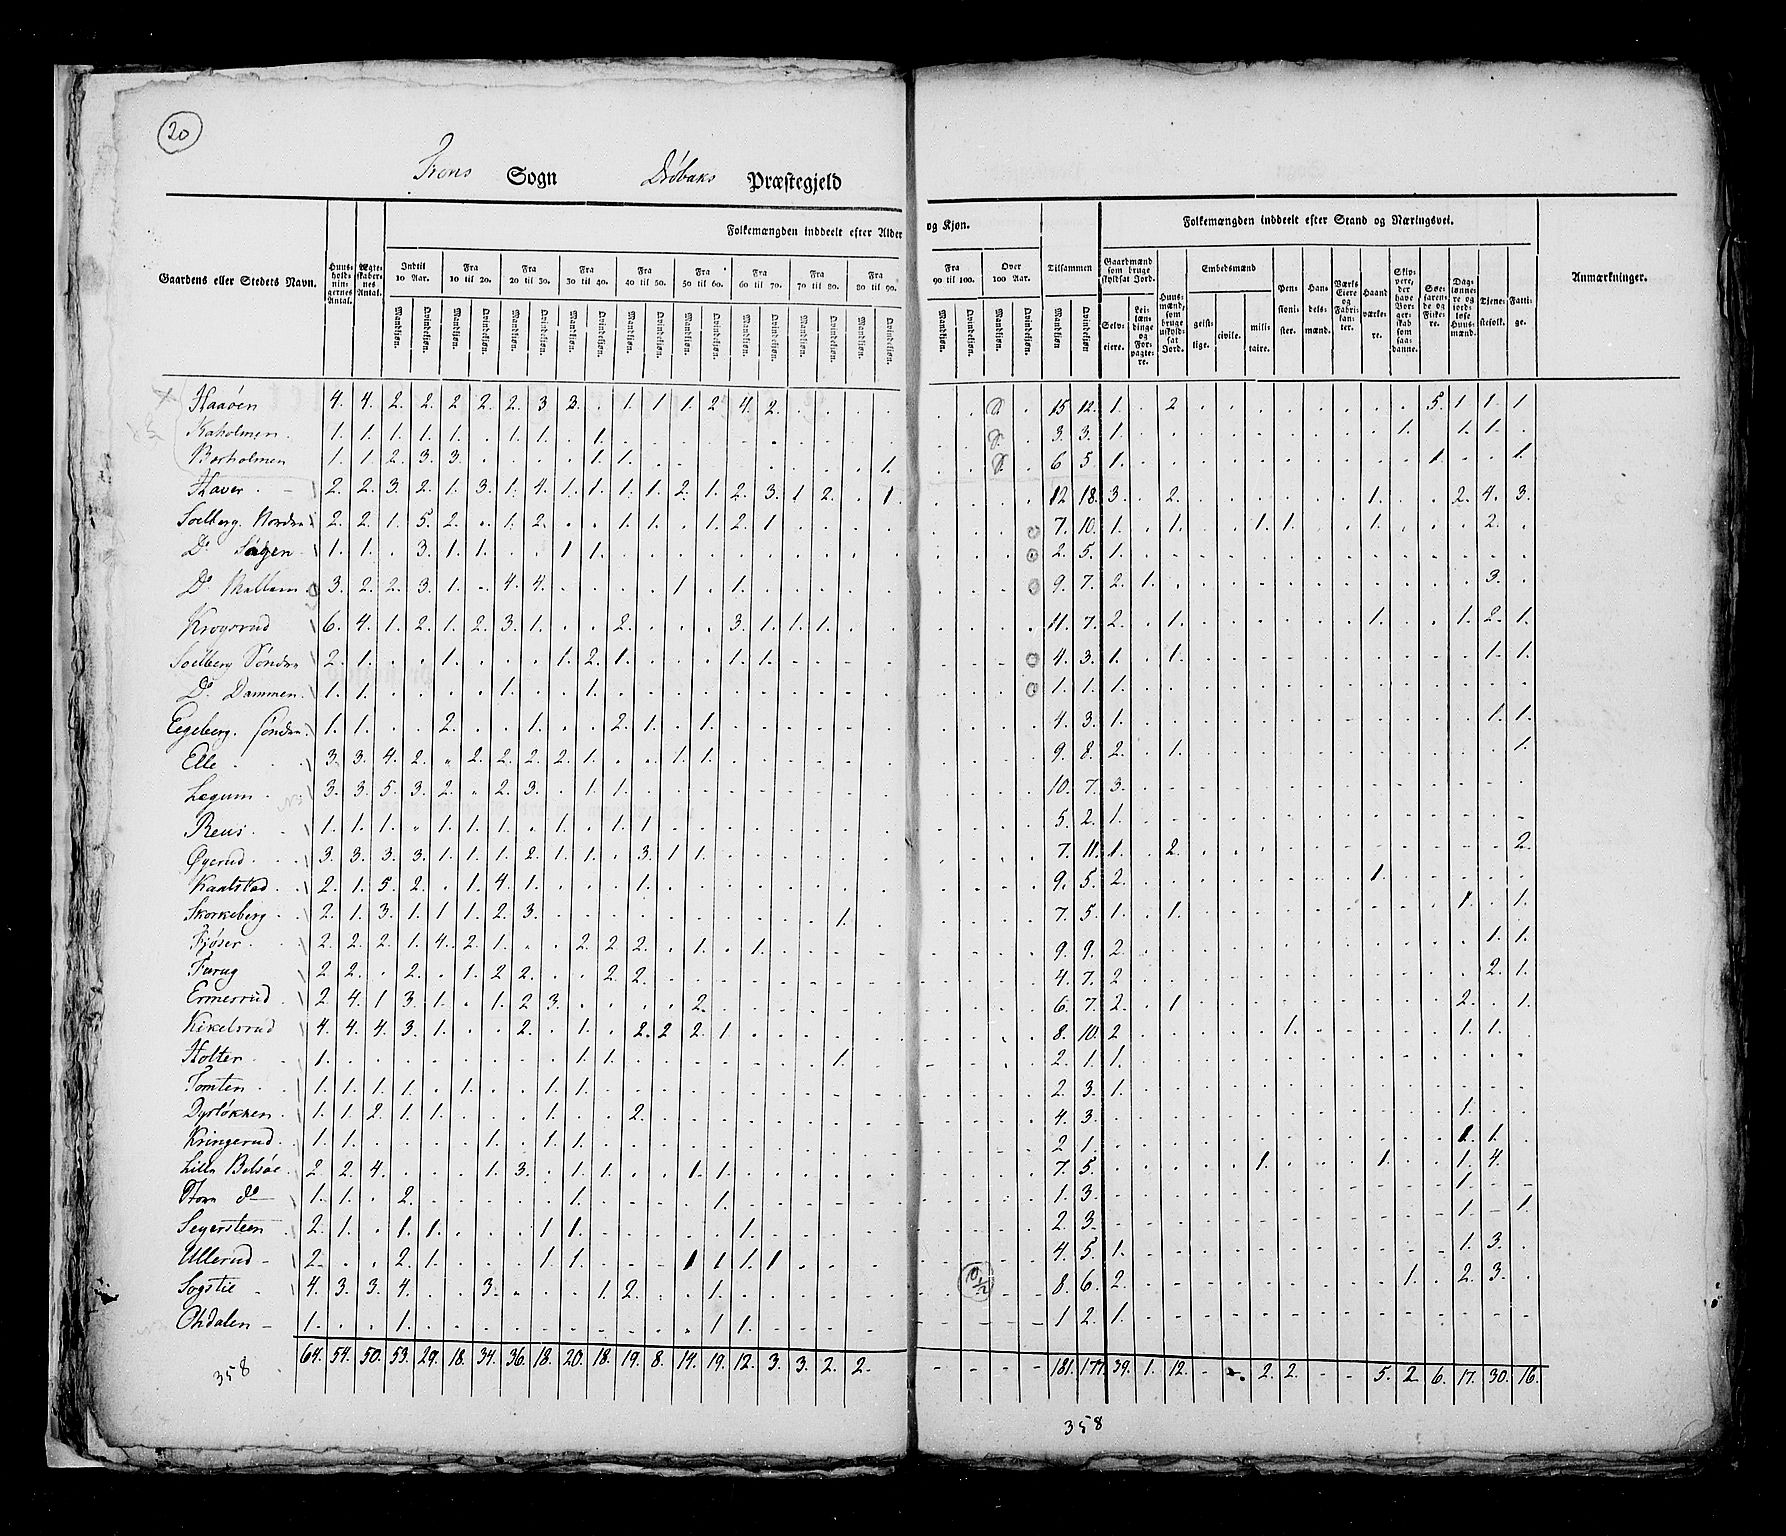 20
Frons Sogn Drøbaks Præstegjeld
Gaardens eller Stedets Navn.
Huus-holdnin-gernes Antal.
Ægte-skaber-nes Antal.
Folkemængden inddeelt efter Alder og Kjøn.
Indtil 10 Aar. Fra 10 til 20. Fra 20 til 30. Fra 30 til 40. Fra 40 til 50. Fra 50 til 60. Fra 60 til 70. Fra 70 til 80. Fra 80 til 90. Fra 90 til 100. Over 100 Aar. Tilsammen
Mandkjøn. Qvindekjøn.
Folkemængden inddeelt efter Stand og Næringsvei.
Gaardmænd som bruge skyldsat Jord.
Selv-eiere.
Lei-læn-dinge og For-pagte-re.
Huus-mænd, som bruge uskyld-sat Jord.
Embedsmænd
geist-lige. civile. mili-taire.
Pen-sioni-ster.
Han-dels-mænd.
Værks Eiere og Fabri-kan-ter.
Haand-værke-re.
Skip-pere, der have Bor-ger-skab som saa-danne.
Søe-faren-de og Fiske-re.
Dag-lønne-re og jord-løse Huus-mænd.
Tjene-stefolk.
Fatti-ge.
Anmærkninger.
Haaøen 4. 4. 2. 2. 2 2. 2. 3 3. . 1. 1 1. 2 4. 2. 15 12. 1. . 2 5. 1. 1. 1
Kaholmen. 1. 1. 1. 1. 1. . 1. 1. . 1. 3. 3. 1. 1. 1. 1.
Borholmen 1. 1. 2. 3. 3. 1. 1. 1. 6 5. 1. 1. 1.
Haver. 2. 2. 3. 2. 1. 3. 1. 4. 1. 1. 1. 1. 2. 1. 2. 3. 1 2. . 1. 12 18. 3. . 2. 1. 2. 4. 3.
Soelberg. Nordre 2. 2. 1. 5. 2. . 1. 2. . . 1. 1. . 1. 2. 1 7. 10. 1. . 1. 1. 1. 1. 2.
Do 1. 1. . 3. 1. 1. . . 1 1. 2. 5. 1.
Do 3. 2. 2. 3. 1. . 4. 4. 1 . 1. 9. 7. 2. 1. 3.
Krogsrud 6. 4. 1. 2. 1. 2. 3. 1. . . 2. . . . 3. 1. 1. 1. 11. 7. 2. . 1. 1. 1. 2. 1.
Soelberg Søndre 2. 1. . . 1. . . . 1. 2. 1. . . . 1. 1. 4. 3. 1. . 1. 1. 1.
Do Dammen. 1. 1. . . . . 1. . . 1. 1. 1. 1.
Egeberg. søndre. 1. 1. . . 2. . . 1. . . 2. 1. . 1. 4. 3. 1. 1. 1.
Elle 3. 3. 4. 2. . 2. 2. 2. 2. 1. . . 1. 1. 9. 8. 2. . 1. 1.
Legum. 3. 3. 5. 3. 2. . 2. 3. . 1. 1. 10. 7. 3.
Reus. 1. 1. 1. . 1. 1. 1. . 1. . 1. 1. 5. 2. 1.
Øyerud. 3. 3. 3. 3. 1. 1. 1. 2. 1. 1. . 3. 1 1. 7. 11. 1. . 2. 2.
Kaalstad. 2. 1. 5. 2. . 1. 4. 1. . . . 1. 9. 5. 2. 1.
Skorkeberg 2. 1. 3. 1. 1 1. 2. 3. 1. 7. 5. 1. . 1. 1. . 1.
Fjøser. 2. 2. 2. 1. 4. 2. 1. . . 2. 2. 2. . 1. . 1. 9. 9. 2. 1. 1.
Farug 2 2. . 2. . 1. 2 2. . . 2 2. 4. 7. 2 2. 1.
Ermesrud. 2. 4. 1 3. 1. . 1. 2 3. 2. 6. 7. 2. . 1 2. . 1.
Kikelsrud 4. 4. 4. 3. 1. . . 2. . 1. . 2. 2 2. 1 8. 10. 2 1. 1. 1.
Holter. 1. 1. 1. 1. 2. 1. 1.
Tomten. 1. 1. 1. 1. . 1. . . 1. 1. 2 3. 1.
Dyrløkken. 1. 1. 2. 1. 1. . . . 1. . . 2. 4. 3. 1.
Kringerud. 1. 1. 1. . 1. 1. 2 1. 1. 1.
Lille Belsøe. 2. 2. 4. . . . 1. 3. . 1. 1. . . 1. 1. 7. 5. 1. 1. 1. 4.
Store do 1. 1. . 2. 1. 1. 1. 3. 1.
Segersteen 2. 1. . 1. 1. . . . 1 1. 1. 2 3. 1. . 1
Ullerud 2. . . 2. 1. . . . 1. 1. 1 1. 1. 1 4. 5. 1. 1. 3.
Sogstie 4. 3. 3. 4. . . 3. . . . 1. 2. . . 1. 10/2 8. 6. 2. 1. . 2. 3.
Ohdalen 1. . . 1. 1 1. 1 2. 1.
64. 54. 50. 53. 29. 18. 34. 36. 18. 20. 18. 19. 8. 14. 19. 12. 3. 3. 2. 2. 181. 177. 39. 1. 12. 2. 2. 5. 2 6. 17. 30. 16.
358
358